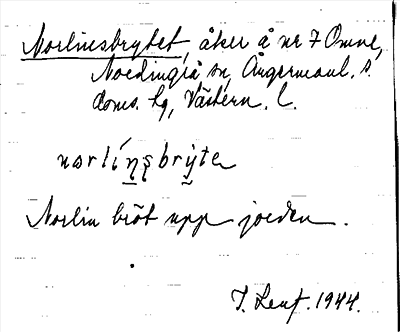 Norlinsbrytet, åker å nr 7 Omne,
Nordingrå sn, Ångermanl. s.
doms. hg, Västern. l.
norlíns̩brỳte
Norlin bröt upp jorden.
1944.